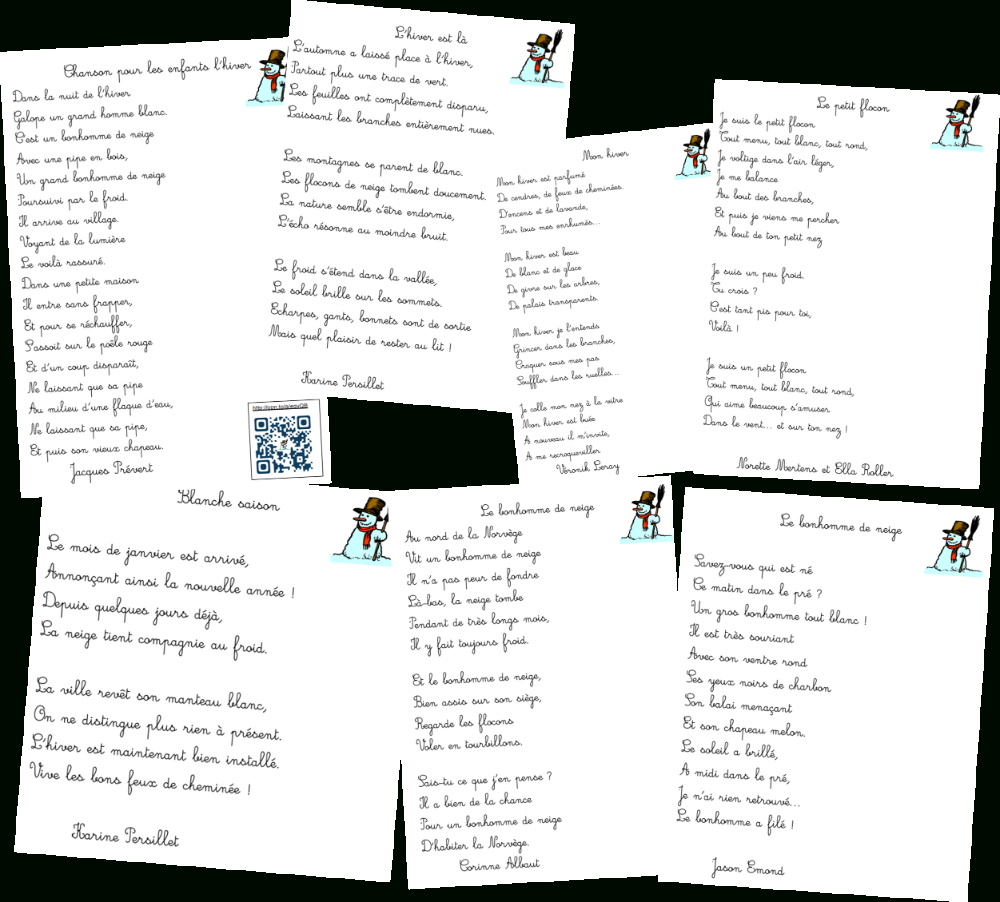 Chanson pour les enfants l'hiver
Dans la nuit de l'hiver
Galope un grand homme blanc.
C'est un bonhomme de neige
Avec une pipe en bois,
Un grand bonhomme de neige
Poursuivi par le froid.
Il arrive au village.
Voyant de la lumière
Le voilà rassuré.
Dans une petite maison
Il entre sans frapper,
Et pour se réchauffer,
S'assoit sur le poêle rouge
Et d'un coup disparaît,
Ne laissant que sa pipe
Au milieu d'une flaque d'eau,
Ne laissant que sa pipe,
Et puis son vieux chapeau.
Jacques Prévert
L'hiver est là
L'automne a laissé place à l'hiver,
Partout plus une trace de vert.
Les feuilles ont complètement disparu,
Laissant les branches entièrement nues.
Les montagnes se parent de blanc.
Les flocons de neige tombent doucement.
La nature semble s'être endormie,
L'écho résonne au moindre bruit.
Le froid s'étend dans la vallée,
Le soleil brille sur les sommets.
Echarpes, gants, bonnets sont de sortie
Mais quel plaisir de rester au lit !
Karine Persillet
Mon hiver
Mon hiver est parfumé
De cendres, de feux de cheminées.
D'encens et de lavande,
Pour tous mes enrhumés...
Mon hiver est beau
De blanc et de glace
De givre sur les arbres,
De palais transparents.
Mon hiver je l'entends
Grincer dans les branches,
Craquer sous mes pas
Souffler dans les ruelles...
Je colle mon nez à la vitre
Mon hiver est buée
A nouveau il m'invite,
A me recroqueviller
Véronik Leray
Le petit flocon
Je suis le petit flocon
Tout menu, tout blanc, tout rond,
Je voltige dans l'air léger,
Je me balance
Au bout des branches,
Et puis je viens me percher
Au bout de ton petit nez
Je suis un peu froid.
Tu crois ?
C'est tant pis pour toi,
Voilà !
Je suis un petit flocon
Tout menu, tout blanc, tout rond,
Qui aime beaucoup s'amuser
Dans le vent... et sur ton nez !
Norette Mertens et Ella Roller
Blanche saison
Le mois de janvier est arrivé,
Annonçant ainsi la nouvelle année !
Depuis quelques jours déjà,
La neige tient compagnie au froid.
La ville revêt son manteau blanc,
On ne distingue plus rien à présent.
L'hiver est maintenant bien installé.
Vive les bons feux de cheminée !
Karine Persillet
Le bonhomme de neige
Au nord de la Norvège
Vit un bonhomme de neige
Il n'a pas peur de fondre
Là-bas, la neige tombe
Pendant de très longs mois,
Il y fait toujours froid.
Et le bonhomme de neige,
Bien assis sur son siège,
Regarde les flocons
Voler en tourbillons.
Sais-tu ce que j'en pense ?
Il a bien de la chance
Pour un bonhomme de neige
D'habiter la Norvège.
Corinne Albaut
Le bonhomme de neige
Savez-vous qui est né
Ce matin dans le pré ?
Un gros bonhomme tout blanc !
Il est très souriant
Avec son ventre rond
Ses yeux noirs de charbon
Son balai menaçant
Et son chapeau melon.
Le soleil a brillé,
A midi dans le pré,
Je n'ai rien retrouvé...
Le bonhomme a filé !
Jason Emond